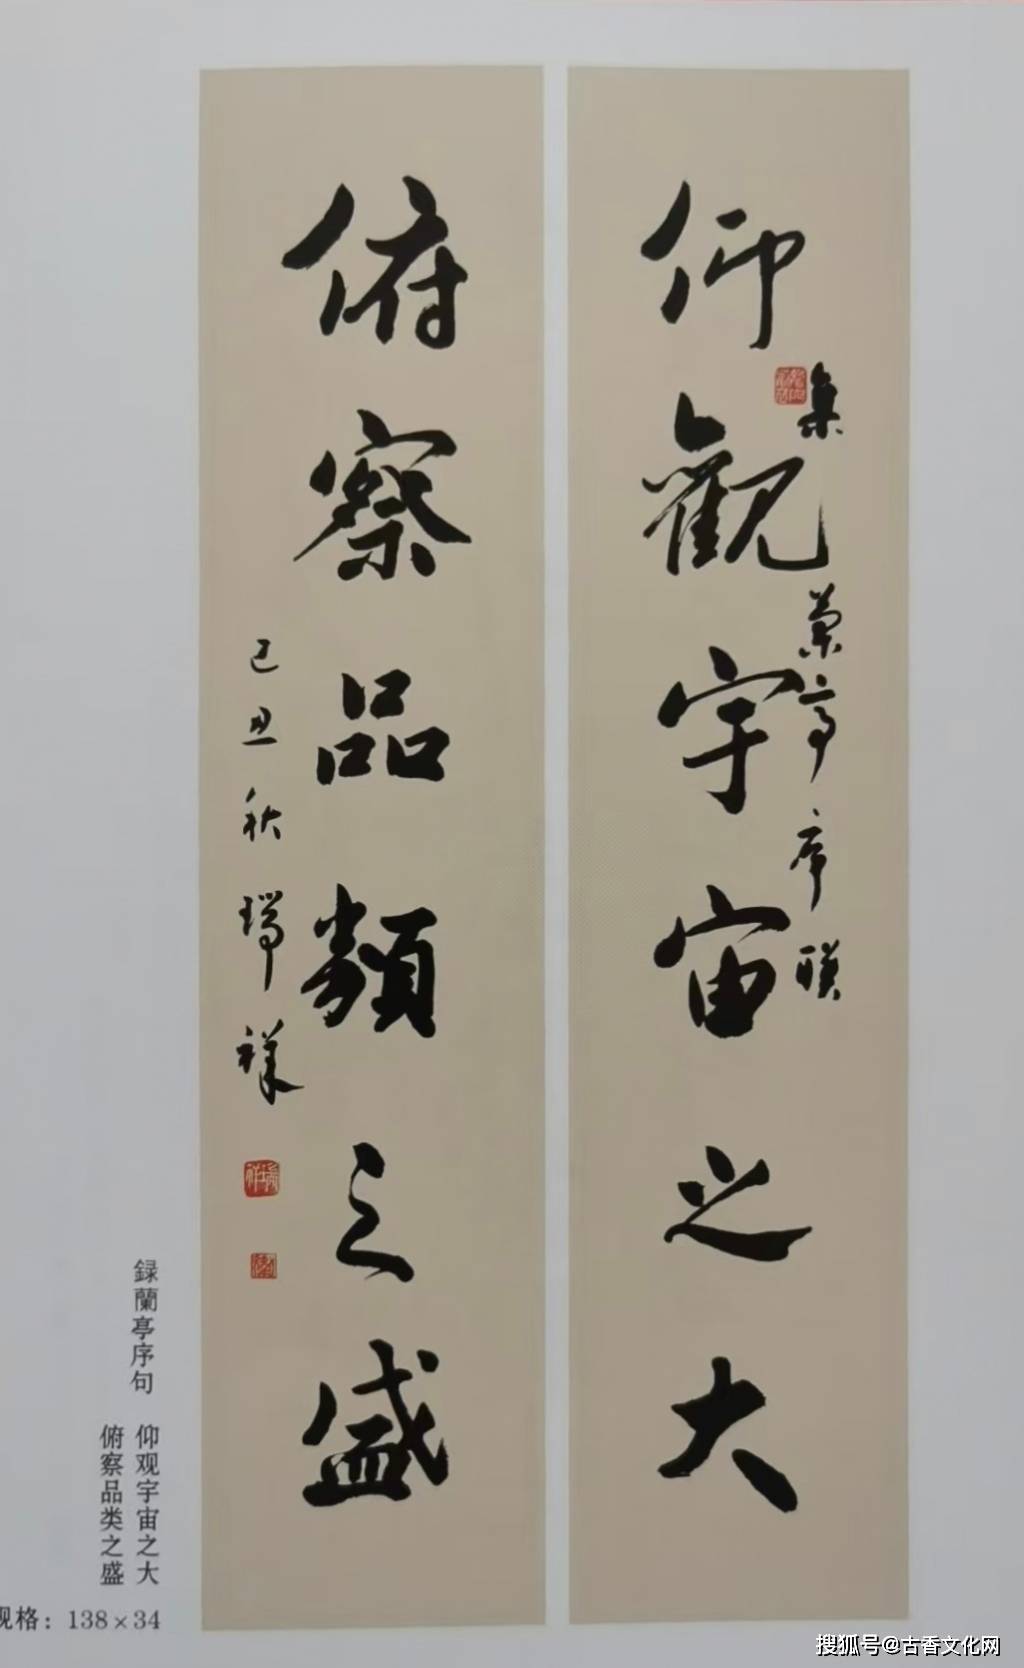 仰觀宇宙之大
集蘭亭序聯
俯察品類之盛
己丑秋瑞祥
録蘭亭序句
仰观宇宙之大
俯察品类之盛
规格：138×34
搜狐号@古香文化网